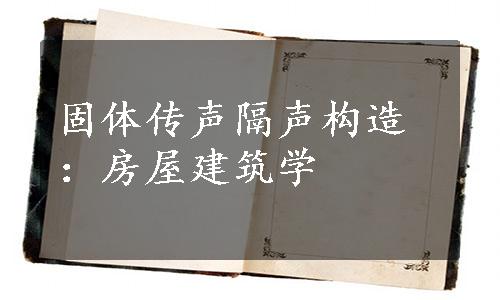 固体传声隔声构造
：房屋建筑学